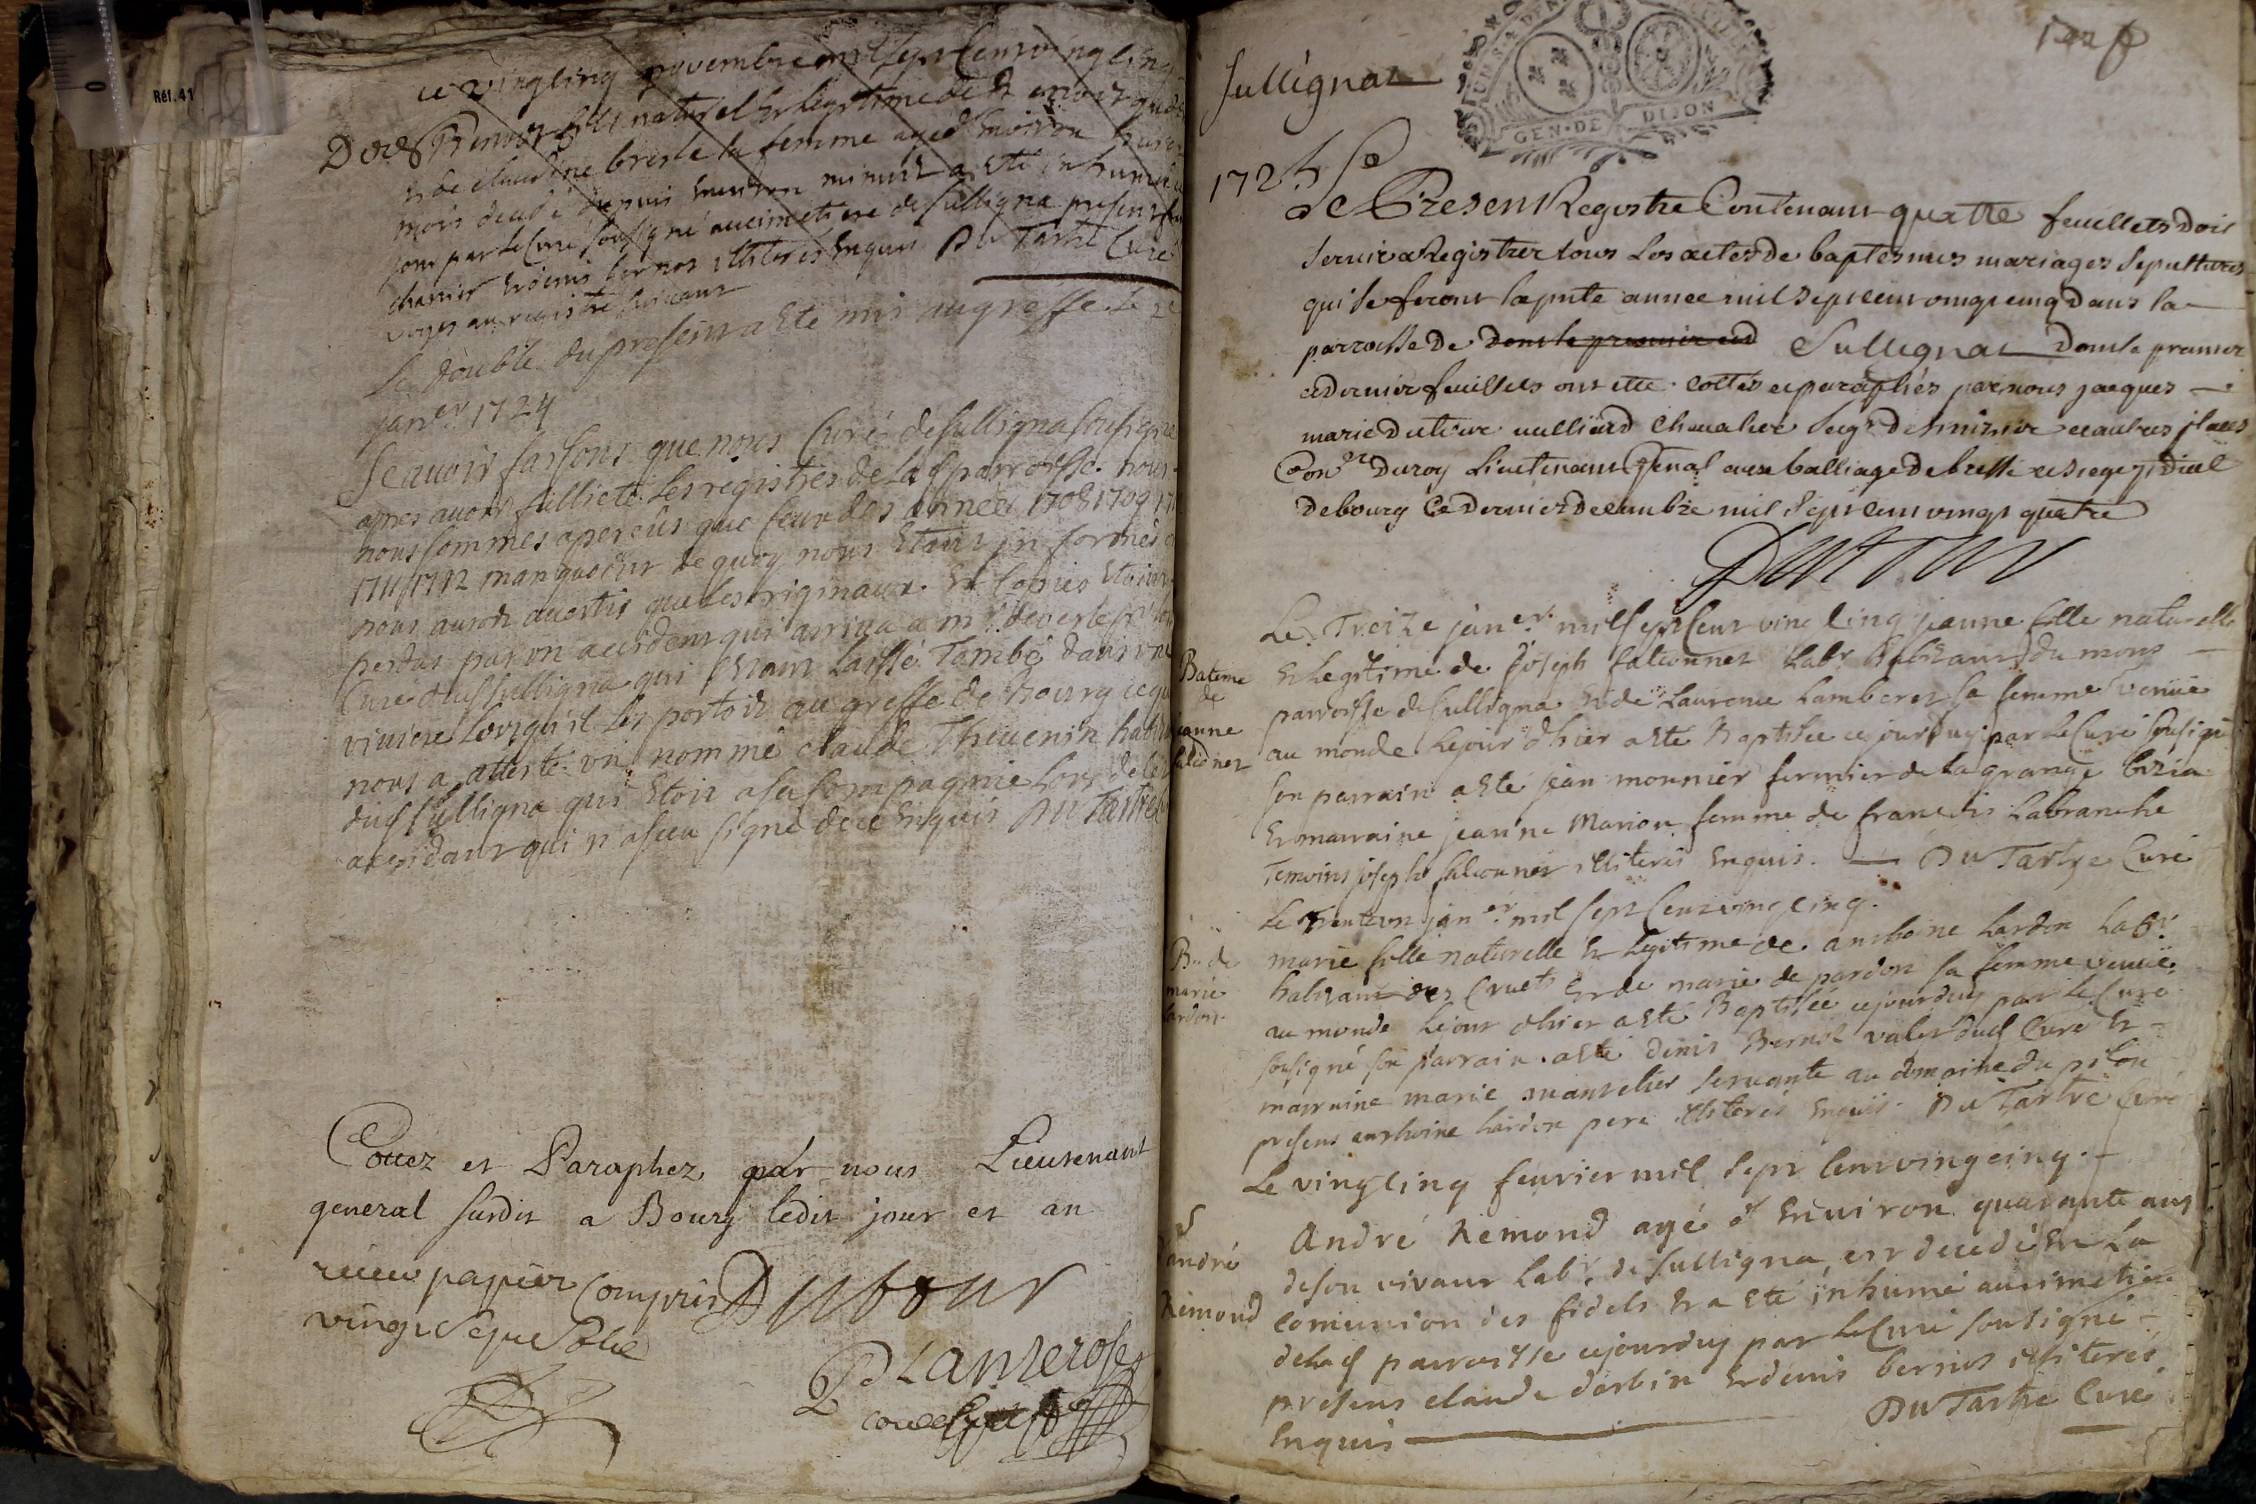 Réf. 41
0
ce vingt cinq novembre mil sept cent vingt cinq
Deces Bernos fils naturel et legitime de
et de claudine bresle sa femme agé d'environ
mois decedé depuis environ minuit a esté inhumé
jour par Le Curé sousigné au cimetiere de Sulligna present
charrier et denis bernos illiteres enquis Du Tartre Curé
voyes au registre suivant
Le double du present a esté mis au greffe le 2e
janer 1724
Scavoir faisons que nous Curé de Sulligna sousigné
apres avoir feullieté les registres de lad parroisse nous
nous sommes aperceus que ceux des année 1708 1709 17
1711 1712 manquoient de quoy nous etant informés
nous auroit avertis que les originaux et Copies etoient
perdus par un accident qui arriva a mr
Curé dud Sulligna qui estant laissé tombé dans une
riviere lorsqu'il les portoit au greffe de Bourg ce qu
nous a attesté un nommé claude Thevenin
dud Sulligna qui etoit a sa compagnie lors de
accident qui n'a sceu signé de ce enquis Du Tartre
Cottez et Paraphez par nous Lieutenant
general susdit a Bourg ledit jour et an
receu papier compris Dutour
vingt sept solz
PLanterose
Sullignat
GEN · DE DIJON
1er f
1725 Le Present Registre Contenant quattre feuillets doit
servir a Registrer tous Les actes de baptesmes mariages sepultures
qui se feront la pnte annee mil sept cent vingt cinq dans la
parroisse de dont le premier et d Sullignat dont le premier
et dernier feuillets ont ette cottés et paraphés par nous jacques
marie dutour vulliard Chevalier Segr de st nizier et autres places
Coner du roy Lieutenant Genal au balliage de bresse et siege pdial
de bourg Ce dernier decembre mil sept cent vingt quatre
Dutour
Le Treize janer mil sept cent vint cinq jeanne fille naturelle
Bateme
de
jeanne
falconet
et legitime de Joseph falconnet labr habitant du mons
parroisse de Sulligna et de Laurence Lamberet sa femme venue
au monde le jour d'hier a esté Baptisée ce jourduy par le Curé sousigné
son parrain a esté jean monnier fermier de la grange bizia
et marraine jeanne Marion femme de françois Labranche
Temoins joseph falconnet illiteres enquis. Du Tartre Curé
Le trente un janer mil sept cent vint cinq.
B. de
marie
Lardon
marie fille naturelle et legitime de anthoine Lardon Labr
habitant des Cruets et de marie de pardon sa femme venue
au monde le jour d'hier a esté Baptisée ce jourduy par le Curé
sousigné son parrain a esté denis Bernos valet dud Curé et
marraine marie mantelier servante au domaine du pilon
presens anthoine Lardon pere illiteres enquis Du Tartre Curé
Le vingt cinq fevrier mil sept cent vingt cinq.
S
andré
Remond
André Remond agé d'environ quarante ans
de son vivant labr de Sulligna, est decedé en La
comunion des fidels et a esté inhumé au cimetiere
de lad parroisse ce jourduy par le Curé sousigné
presens claude darbin et denis bernos illiterés
enquis Du Tartre Curé